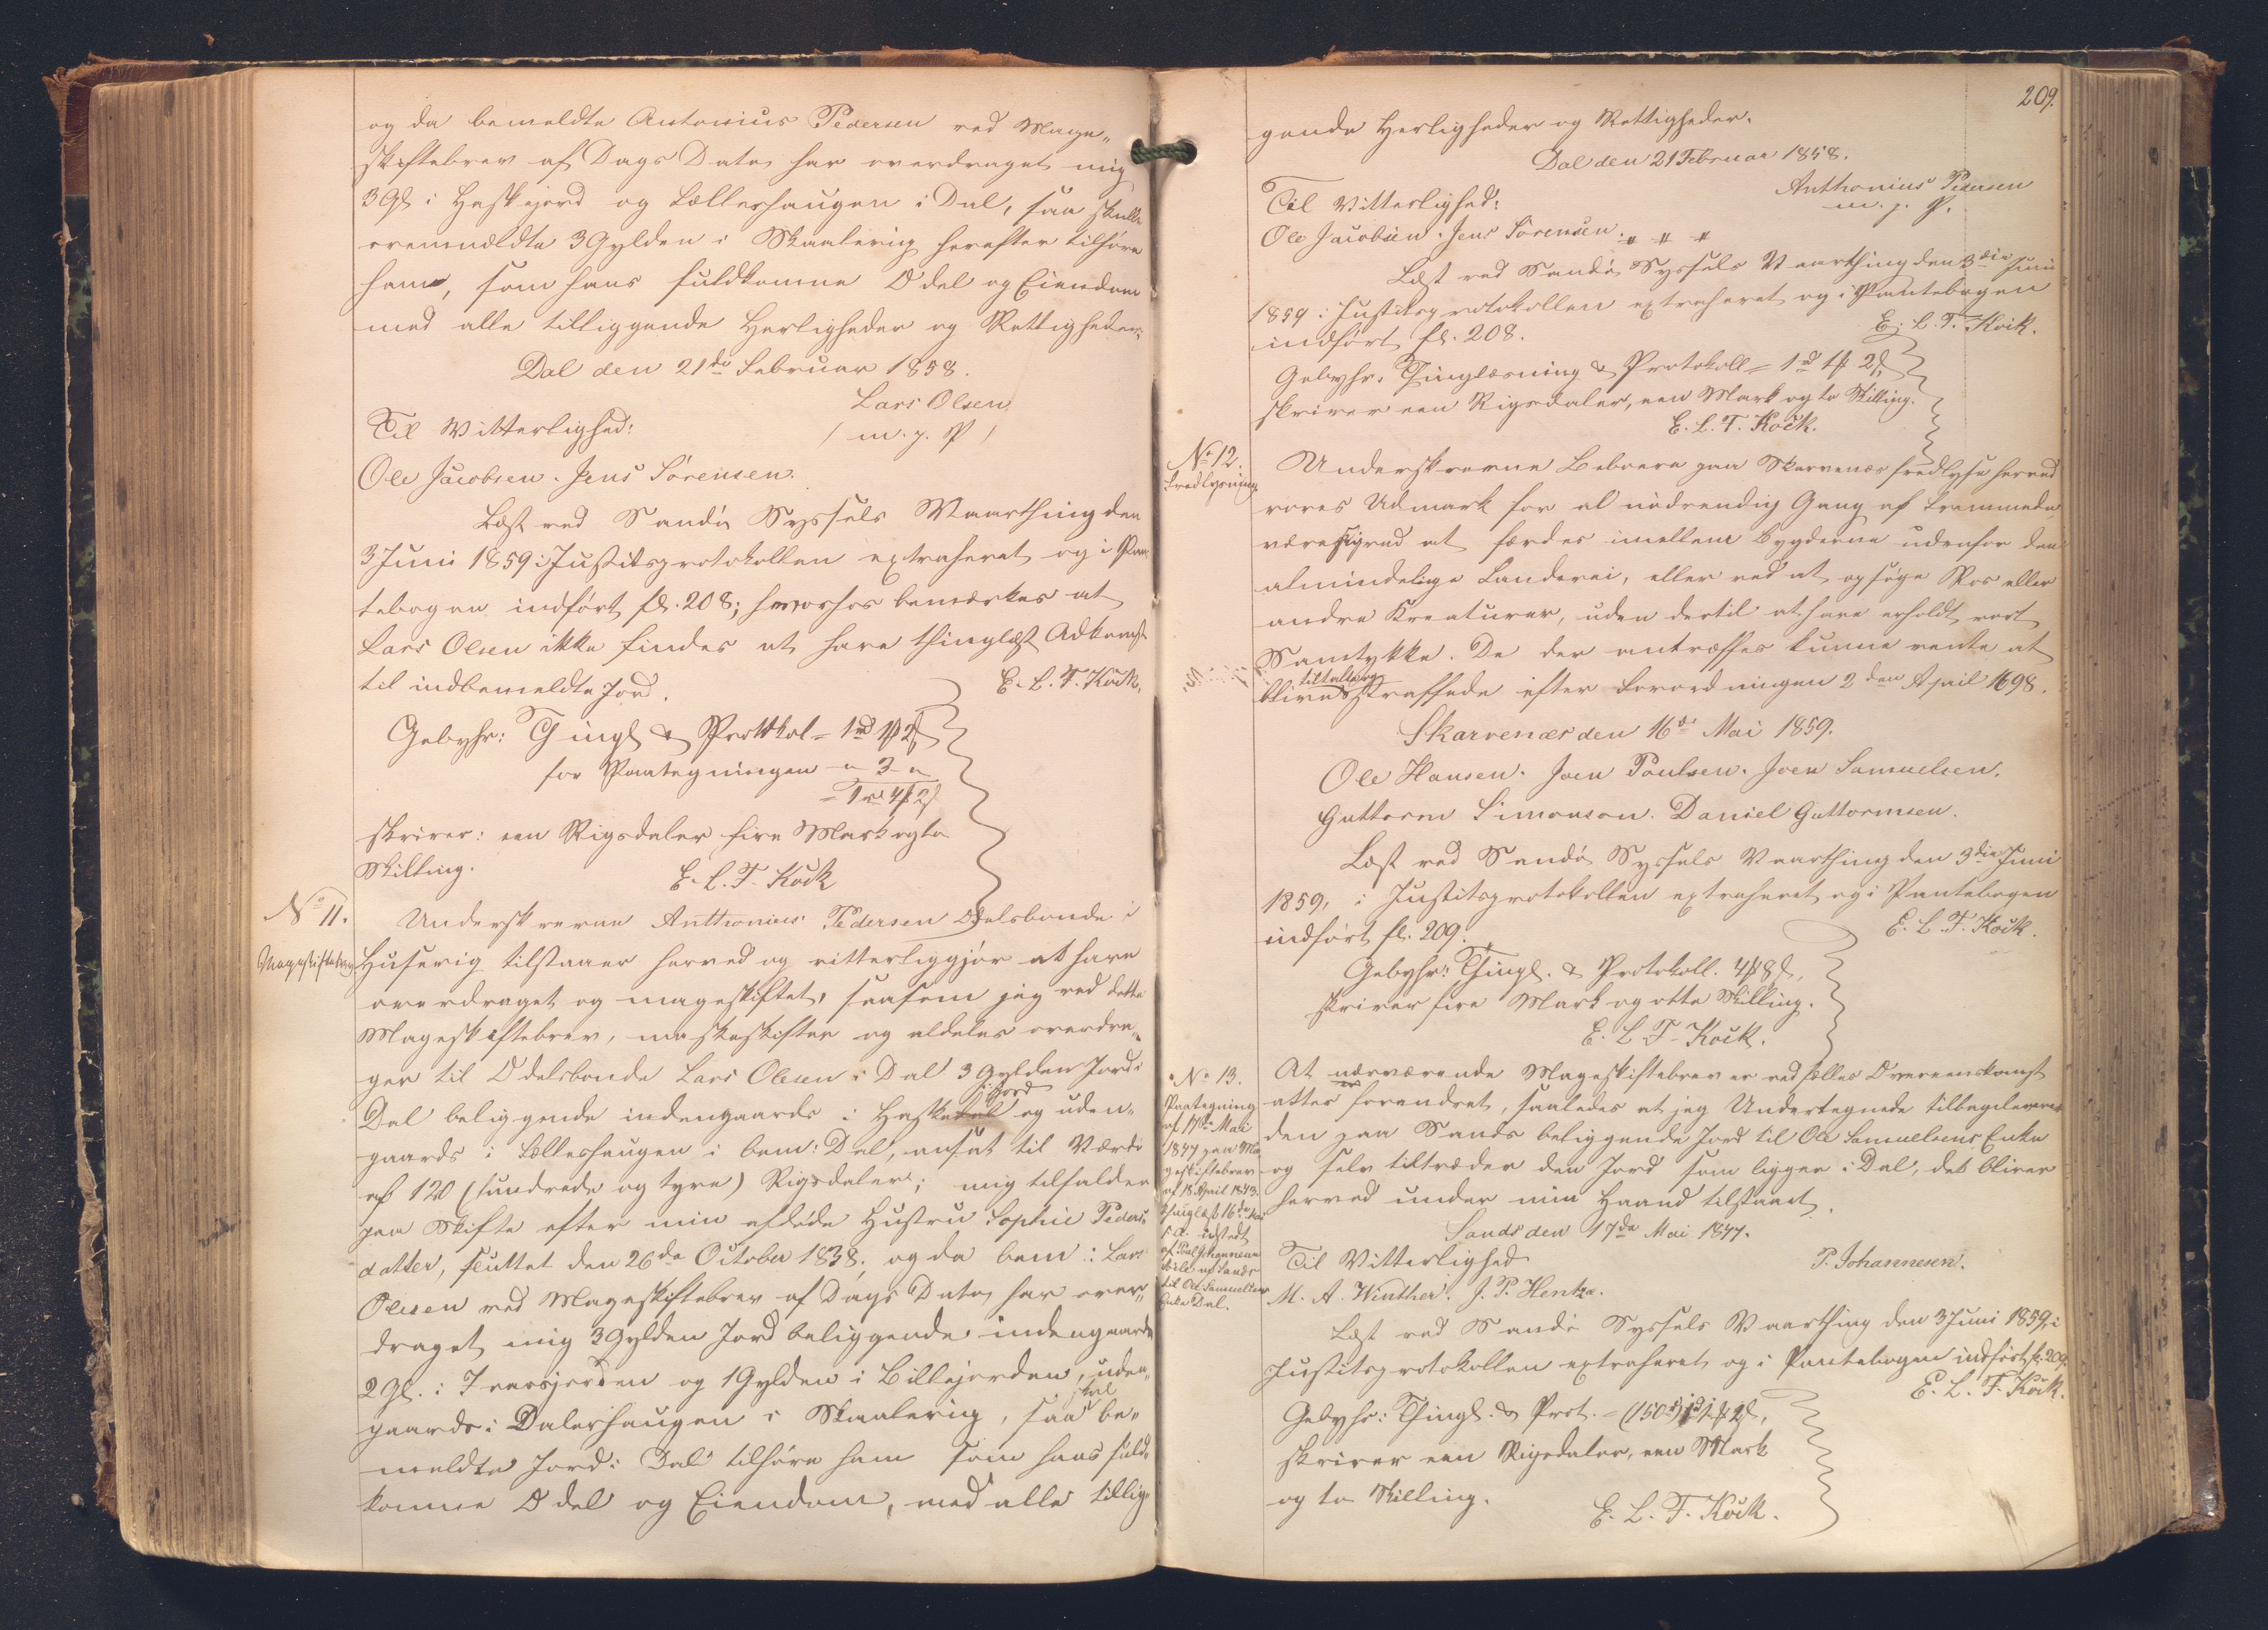 og da bemeldte Antonius Pedersen ved Mage„
skiftebrev af Dags Dato har overdraget mig
3 Gl i Haskejord og Lælleshaugen i Dal, saa skulle
ovenmeldte 3 Gylden i Skaalevig herefter tilhøre
ham, som hans fuldkomne Odel og Eiendom
med alle tilliggende Herligheder og Rettigheder.
Dal den 21de Februar 1858.
Lars Olsen
Til Vitterlighed:
/ m. p. P /
Ole Jacobsen. Jens Sörensen.
Læst ved Sandö Syssels Vaarthing den
3 Juni 1859 i Justitsprotokollen extraheret og i Pan
tebogen indført fl. 208; hvorhos bemærkes at
Lars Olsen ikke findes at have thinglæst Adkomst
til indbemeldte Jord.
E. L. T. Kock.
Gebyhr: Thingl & Protokol = 1rd 1ß 2ſ
for Paategningen " 3 "
= 1rd 4ß 2ſ
skriver: een Rigsdaler fire Mark og to
Skilling.
E. L. T. Kock
No 11.
Mageskiftebrev
Underskrevne Anthonius Pedersen Odelsbonde i
Husevig tilstaaer herved og vitterliggjør at have
overdraget og mageskiftet, saasom jeg ved dette
Mageskiftebrev, mageskifter og aldeles overdra„
ger til Odelsbonde Lars Olesen i Dal 3 Gylden Jord i
Dal beliggende indengaards i Haske jord og uden„
gaards i Lælleshaugen i bem: Dal, ansat til Værdi
af 120 (hundrede og tyve) Rigsdaler; mig tilfalden
paa Skifte efter min afdöde Hustru Sophie Peders„
datter, sluttet den 26de October 1838; og da bem: Lars
Olesen ved Mageskiftebrev af Dags Dato har over„
draget mig 3 Gylden Jord beliggende indengaards
2 Gl. i Traosjorden og 1 Gylden i Billejorden, uden„
gaards i Dalershaugen i Skaalevig, saa skal be„
meldte Jord i Dal tilhöre ham som hans fuld„
komne Odel og Eiendom, med alle tillig„
209.
gende Herligheder og Rettigheder.
Dal den 21 Februar 1858.
Anthonius Pedersen
m. p. P.
Til Vitterlighed:
Ole Jacobsen. Jens Sörensen.
Læst ved Sandö Syssels Vaarthing den 3die Juni
1859 i Justitsprotokollen extraheret og i Pantebogen
indført fl. 208.
E. L. T. Kock.
Gebyhr. Thinglæsning & Protokoll = 1rd 1ß 2ſ,
skriver een Rigsdaler, een Mark og to Skilling.
E. L. T. Kock.
No 12.
Fredlysning.
Underskrevne Beboere paa Skarvenæs fredlyse herved
vores Udmark for al unödvendig Gang af Fremmede
være sig ved at færdes imellem Bygderne udenfor den
almindelige Landevei, eller ved at opsøge Kos eller
andre Kreaturer, uden dertil at have erholdt vort
Samtykke. De der antræffes kunne vente at
blive tiltalte og straffede efter Forordningen 2den April 1698.
Skarvenæs den 16de Mai 1859.
Ole Hansen. Joen Poulsen. Joen Samuelsen.
Guttorm Simonsen. Daniel Guttormsen.
Læst ved Sandö Syssels Vaarthing den 3die Juni
1859, i Justitsprotokollen extraheret og i Pantebogen
indført fl. 209.
E. L. T. Kock.
Gebyhr: Thingl. & Protokoll. 4ß 8ſ,
skriver fire Mark og otte Skilling.
E. L. T. Kock.
No 13.
Paategning
af 17de Mai
1847 paa Ma
geskiftebrev
af 18 April 1843.
Thinglæst 16de Mai
s. A. udstedt
af Poul Johannesen
af Sands
til Ole Samuelsens
Enke Dal.
At nærværende Mageskiftebrev er ved fælles Overeenskomst
atter forandret, saaledes at jeg Undertegnede tilbageleverer
den paa Sands beliggende Jord til Ole Samuelsens Enke
og selv tiltræder den Jord som ligger i Dal, det bliver
herved under min Haand tilstaaet.
Sands den 17de Mai 1847.
Til Vitterlighed
P. Johannesen.
M. A. Winther. J. P. Hentze.
Læst ved Sandö Syssels Vaarthing den 3 Juni 1859, i
Justitsprotokollen extraheret og i Pantebogen indført fl. 209.
E. L. T. Kock.
Gebyhr: Thingl. & Prot. = (150rd) 1rd 1ß 2ſ,
skriver een Rigsdaler, een Mark
og to Skilling.
E. L. T. Kock.